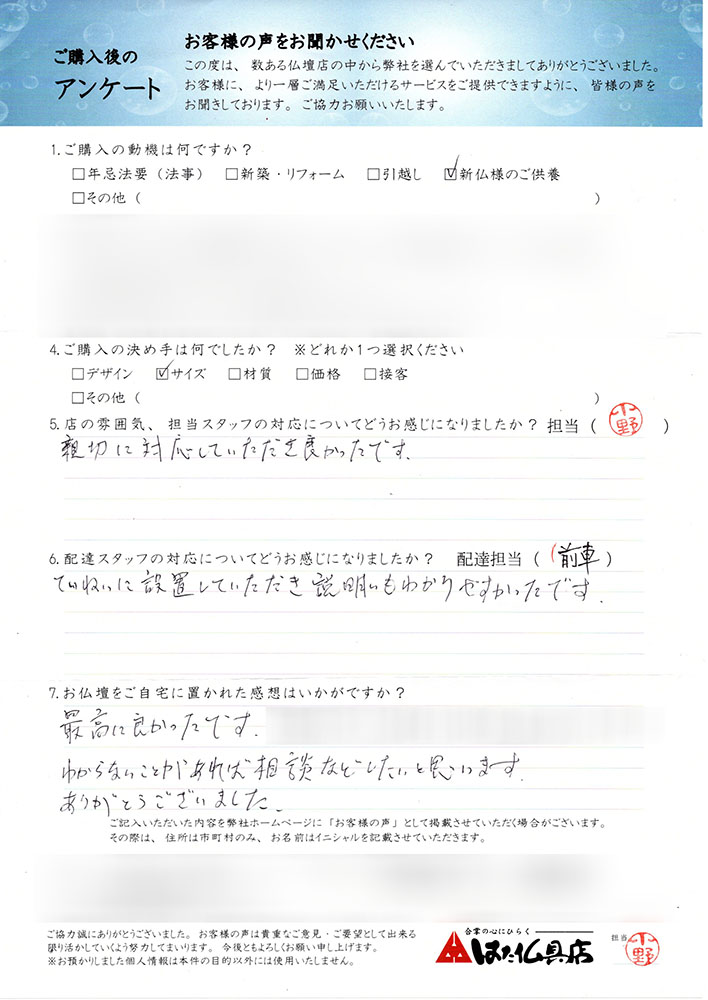 ご購入後の
アンケート
お客様の声をお聞かせください
この度は、数ある仏壇店の中から弊社を選んでいただきましてありがとうございました。
お客様に、より一層ご満足いただけるサービスをご提供できますように、皆様の声を
お聞きしております。ご協力お願いいたします。
1.ご購入の動機は何ですか？
□年忌法要（法事） □新築・リフォーム □引越し ☑新仏様のご供養
□その他（ ）
4.ご購入の決め手は何でしたか？ ※どれか1つ選択ください
□デザイン ☑サイズ □材質 □価格 □接客
□その他（ ）
5.店の雰囲気、担当スタッフの対応についてどうお感じになりましたか？ 担当（ 小野 ）
親切に対応していただき良かったです.
6.配達スタッフの対応についてどうお感じになりましたか？ 配達担当（ 前車 ）
ていねいに設置していただき説明いもわかりやすかったです.
7.お仏壇をご自宅に置かれた感想はいかがですか？
最高に良かったです.
わからないことがあれば相談などしたいと思います.
ありがとうございました.
ご記入いただいた内容を弊社ホームページに「お客様の声」として掲載させていただく場合がございます。
その際は、住所は市町村のみ、お名前はイニシャルを記載させていただきます。
ご協力誠にありがとうございました。お客様の声は貴重なご意見・ご要望として出来る
限り活かしていくよう努力してまいります。今後ともよろしくお願い申し上げます。
※お預かりしました個人情報は本件の目的以外には使用いたしません。
合掌の心にひらく
はた仏具店
担当 小野